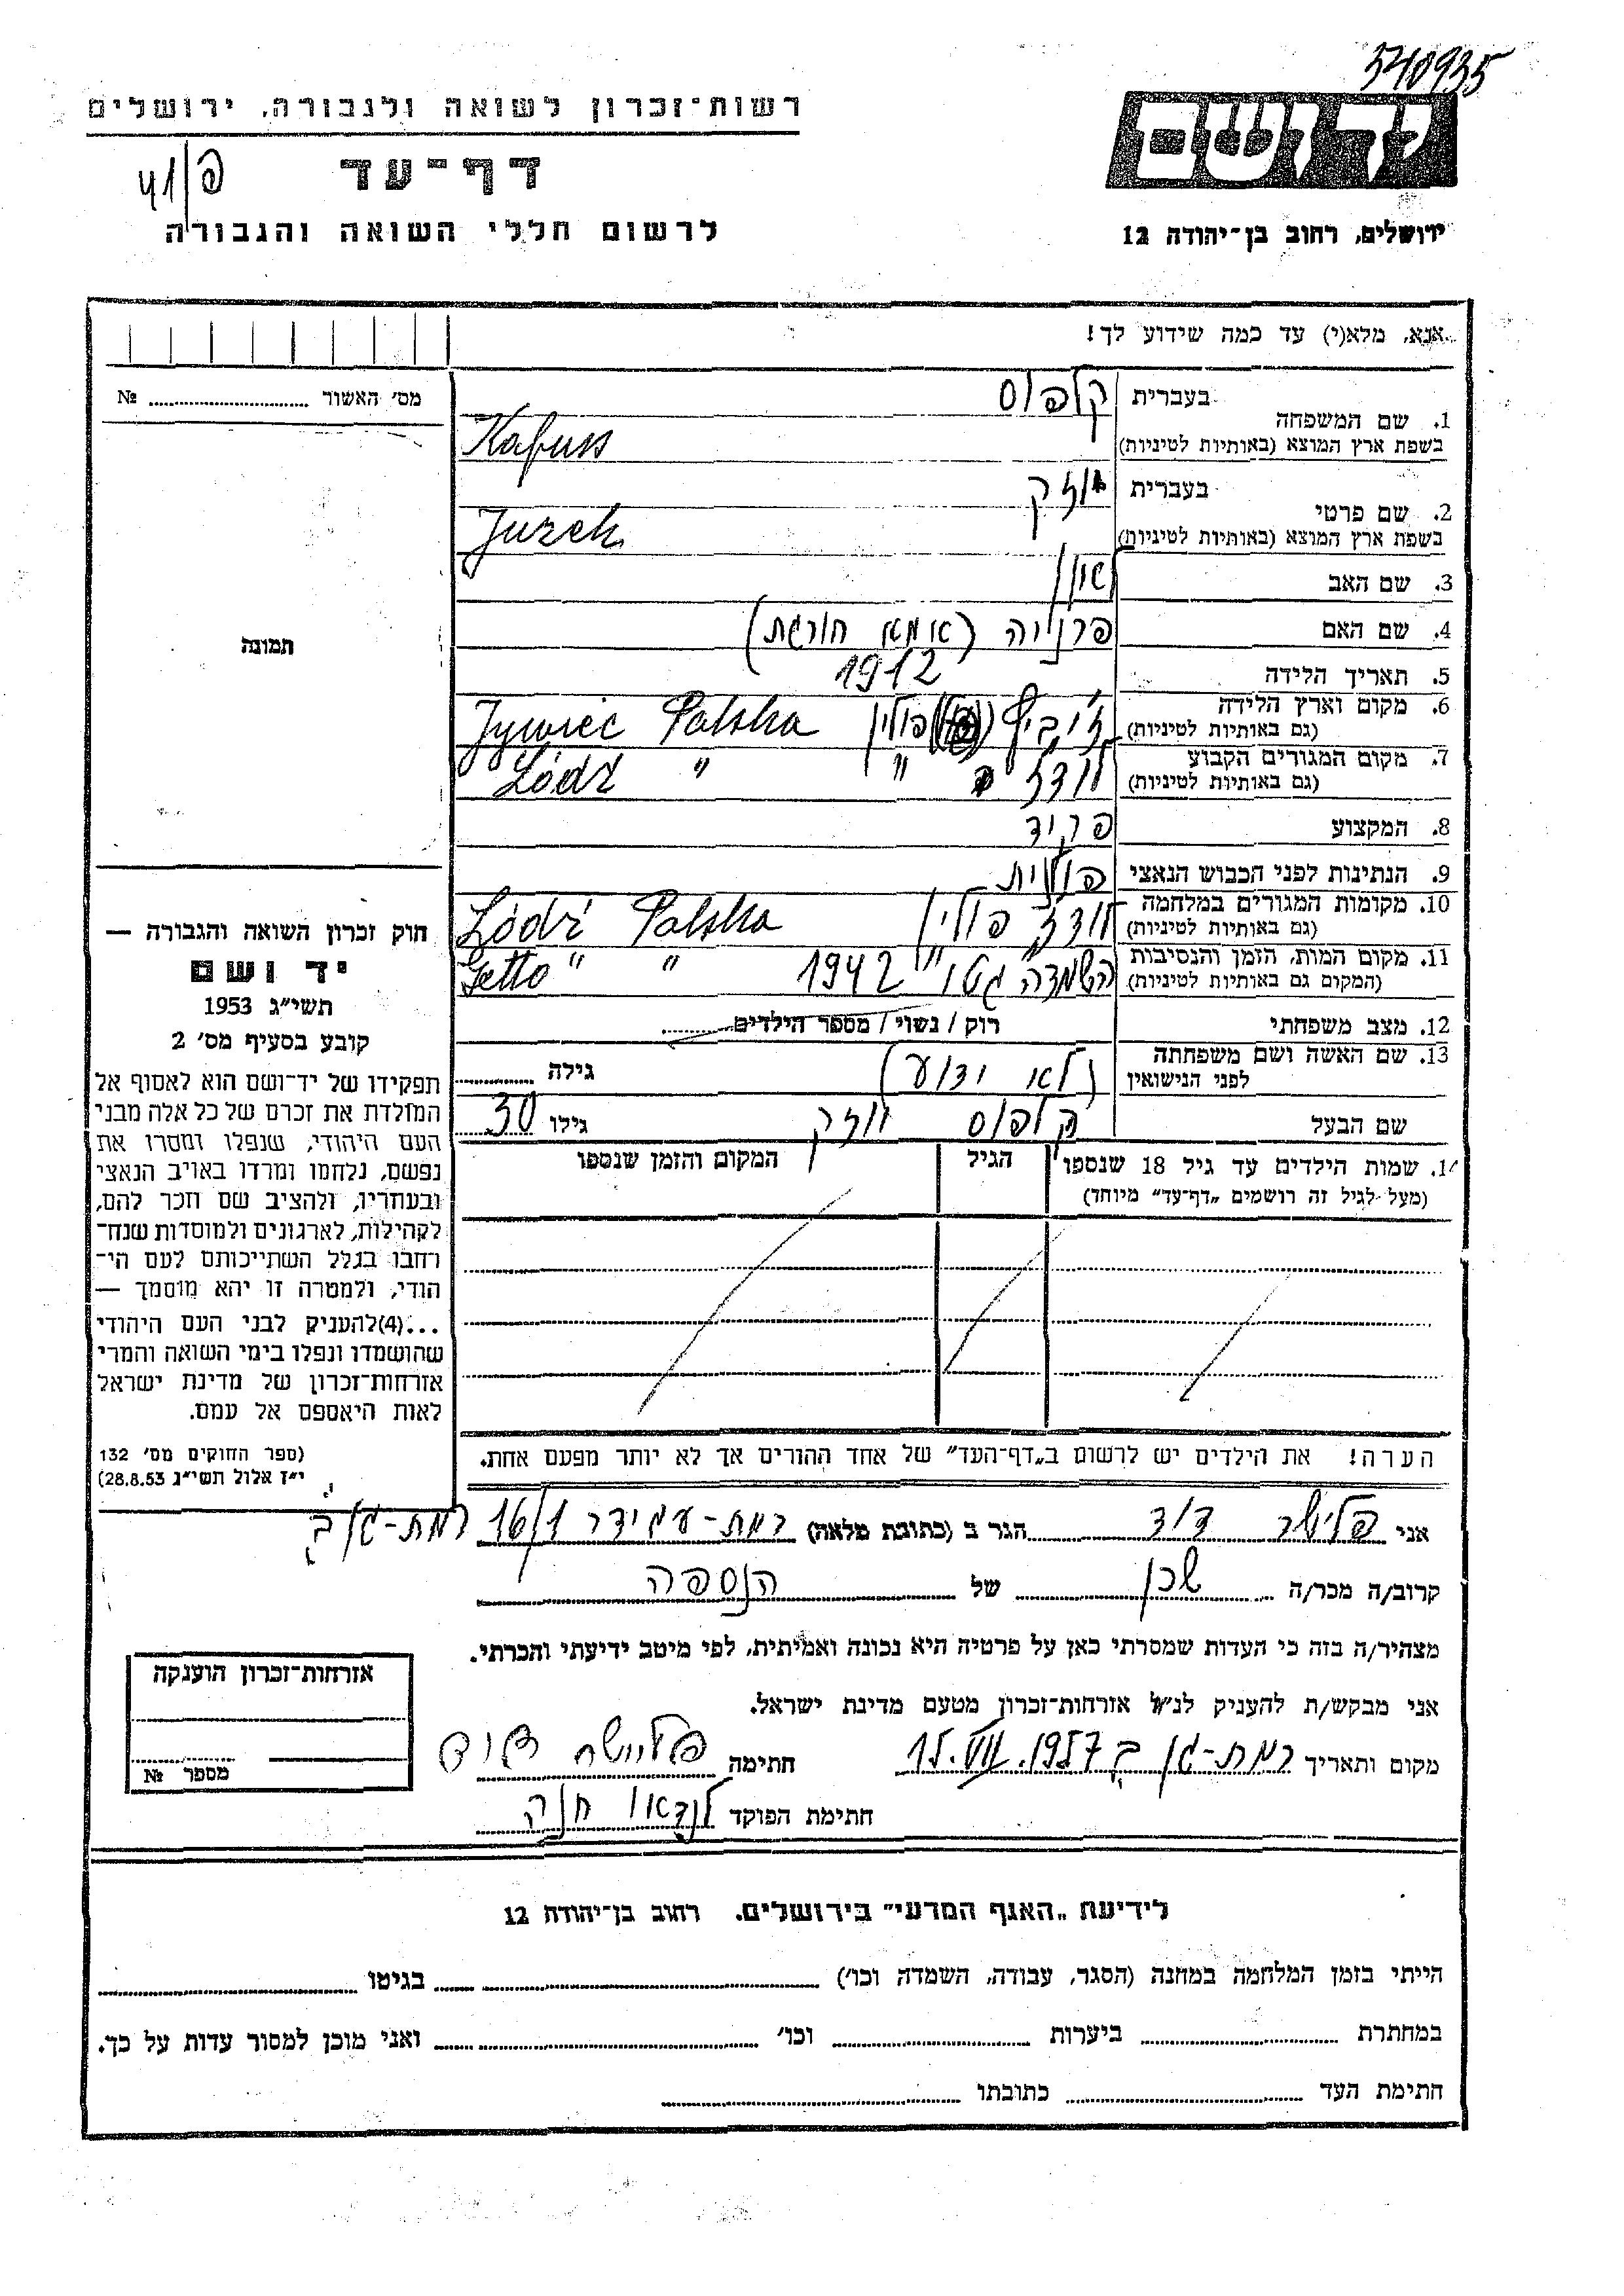 540935
רשות־זכרון לשואה ולגבורה, ירושלים
יד ושם
דף־עד
לרשום חללי השואה והגבורה
ירושלים, רחוב בן־יהודה 12
אנא, מלא(י) עד כמה שידוע לך!
מס׳ האשור ........ №
תמונה
1. שם המשפחה בעברית קפוס
בשפת ארץ המוצא (באותיות לטיניות) Kafuss
2. שם פרטי בעברית יוזק
בשפת ארץ המוצא (באותיות לטיניות) Juzek
3. שם האב
4. שם האם פרניה (אמא חורגת)
5. תאריך הלידה 1912
6. מקום וארץ הלידה פולין Jywiec Polska
(גם באותיות לטיניות)
7. מקום המגורים הקבוע לודז " Łódź "
(גם באותיות לטיניות)
8. המקצוע פקיד
9. הנתינות לפני הכבוש הנאצי פולנית
10. מקומות המגורים במלחמה לודז פולין Łódź Polska
(גם באותיות לטיניות)
11. מקום המות, הזמן והנסיבות השמדה גטו " 1942 Getto " "
(המקום גם באותיות לטיניות)
12. מצב משפחתי רוק / נשוי / מספר הילדים
13. שם האשה ושם משפחתה לפני הנישואין (לא ידוע) גילה
שם הבעל קפוס יוזק גילו 30
14. שמות הילדים עד גיל 18 שנספו הגיל המקום והזמן שנספו
(מעל לגיל זה רושמים „דף־עד״ מיוחד)
הערה! את הילדים יש לרשום ב„דף־העד״ של אחד ההורים אך לא יותר מפעם אחת.
חוק זכרון השואה והגבורה —
יד ושם
תשי״ג 1953
קובע בסעיף מס׳ 2
תפקידו של יד־ושם הוא לאסוף אל
המולדת את זכרם של כל אלה מבני
העם היהודי, שנפלו ומסרו את
נפשם, נלחמו ומרדו באויב הנאצי
ובעוזריו, ולהציב שם וזכר להם,
לקהילות, לארגונים ולמוסדות שנח־
רבו בגלל השתייכותם לעם הי־
הודי, ולמטרה זו יהא מוסמך —
...(4)להעניק לבני העם היהודי
שהושמדו ונפלו בימי השואה והמרי
אזרחות־זכרון של מדינת ישראל
לאות היאספם אל עמם.
(ספר החוקים מס׳ 132
י״ז אלול תשי״ג 28.8.53)
אני פלישר דוד הגר ב (כתובת מלאה) רמת-עמידר 16/1 רמת-גן ב
קרוב/ה מכר/ה שכן של הנספה
מצהיר/ה בזה כי העדות שמסרתי כאן על פרטיה היא נכונה ואמיתית, לפי מיטב ידיעתי והכרתי.
אני מבקש/ת להעניק לנ״ל אזרחות־זכרון מטעם מדינת ישראל.
מקום ותאריך רמת-גן ב 15.VII.1957 חתימה דוד
חתימת הפוקד לנדאו חנה
אזרחות־זכרון הוענקה
מספר №
לידיעת „האגף המדעי״ בירושלים, רחוב בן־יהודה 12
הייתי בזמן המלחמה במחנה (הסגר, עבודה, השמדה וכו׳) בגיטו
במחתרת ביערות וכו׳ ואני מוכן למסור עדות על כך.
חתימת העד כתובתו